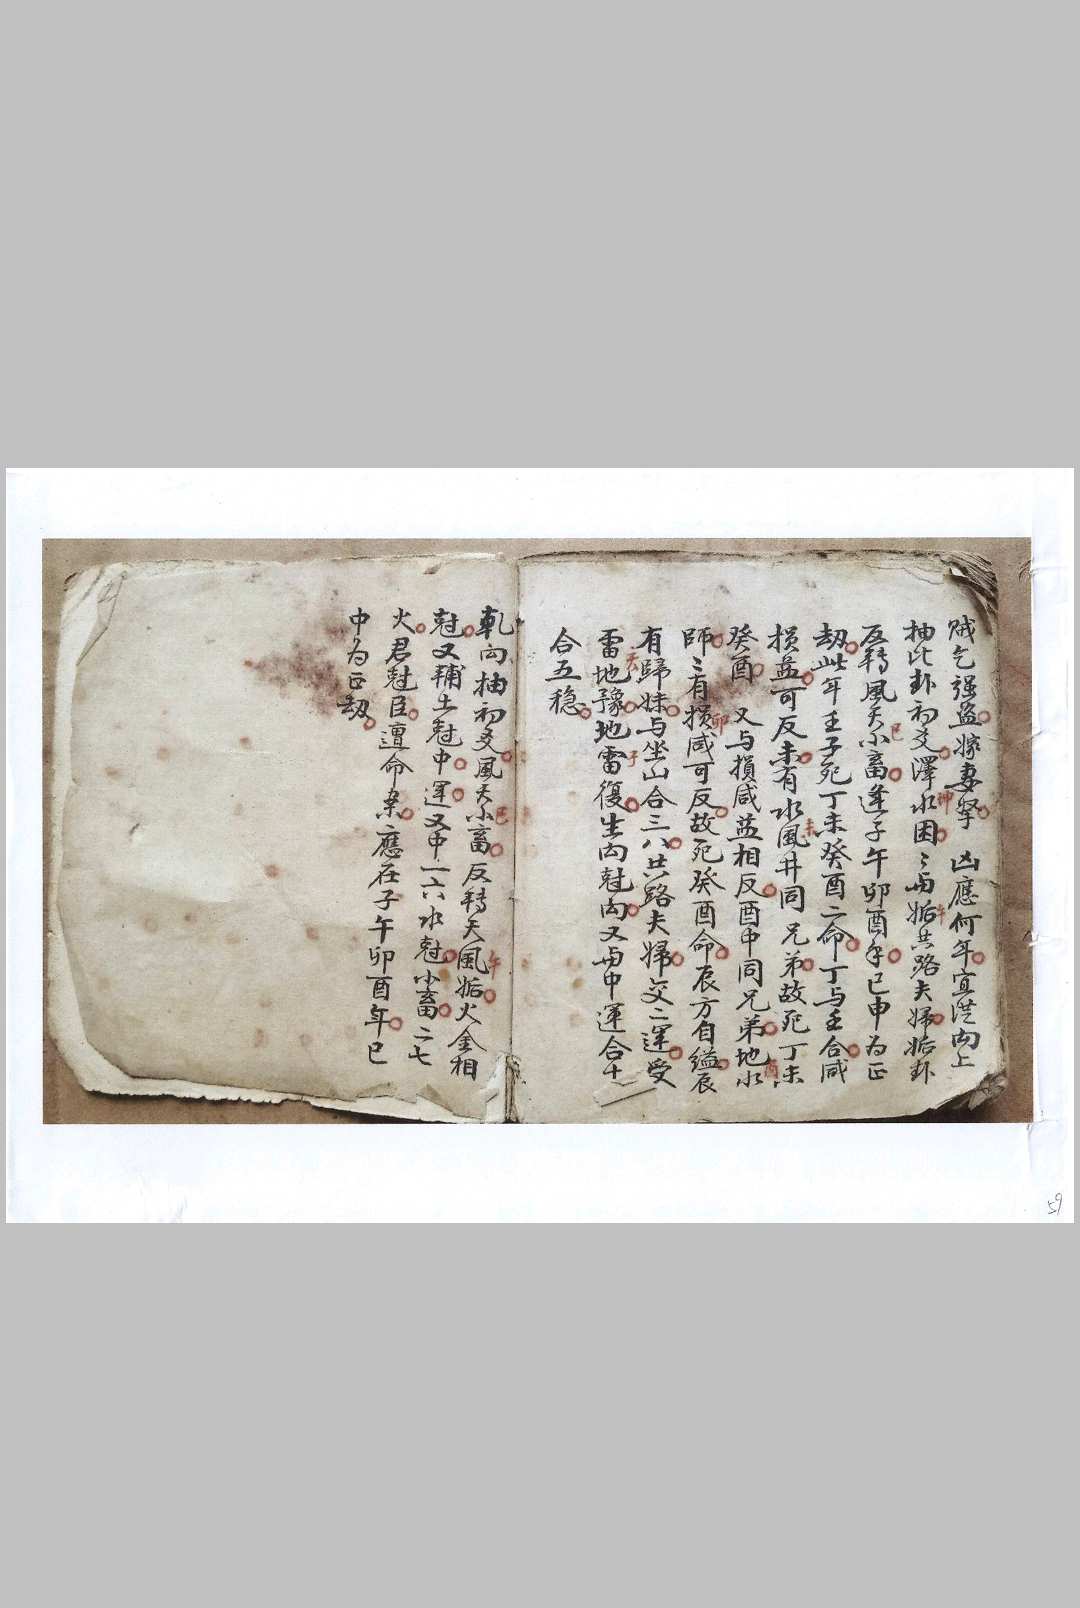 賊乞强盜嫁妻孥 凶應何年宜從向上
抽此卦初爻澤水困〻与姤共路夫婦姤卦
反轉風天小畜逢子午卯酉年巳申为正
劫此年壬子死丁未癸酉二命丁与壬合咸
損益可反未有水風井同兄弟故死丁未
癸酉 又与損咸益相反酉中同兄弟地水
師〻有損咸可反故死癸酉命辰方自縊辰
有歸妹与坐山合三八共路夫婦交二運受
雷地豫地雷復生向尅向又与中運合十
合五穏
軋向抽初爻風天小畜反轉天風姤火金相
尅又輔土尅中運又中一六水尅小畜二七
火君尅臣遭命案應在子午卯酉年巳
中为正劫
巳
申
午
未
卯
酉
子
巳
午
59